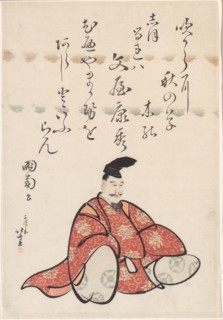 吹からに
秋の草
木の
しほるれハ
文屋康秀
むべやまかぜを
あらしといふ
らん